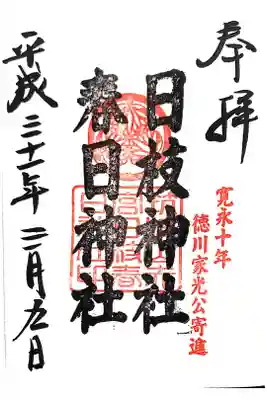 奉拝
寛永十年
徳川家光公寄進
日枝神社
春日神社
平成三十一年二月九日